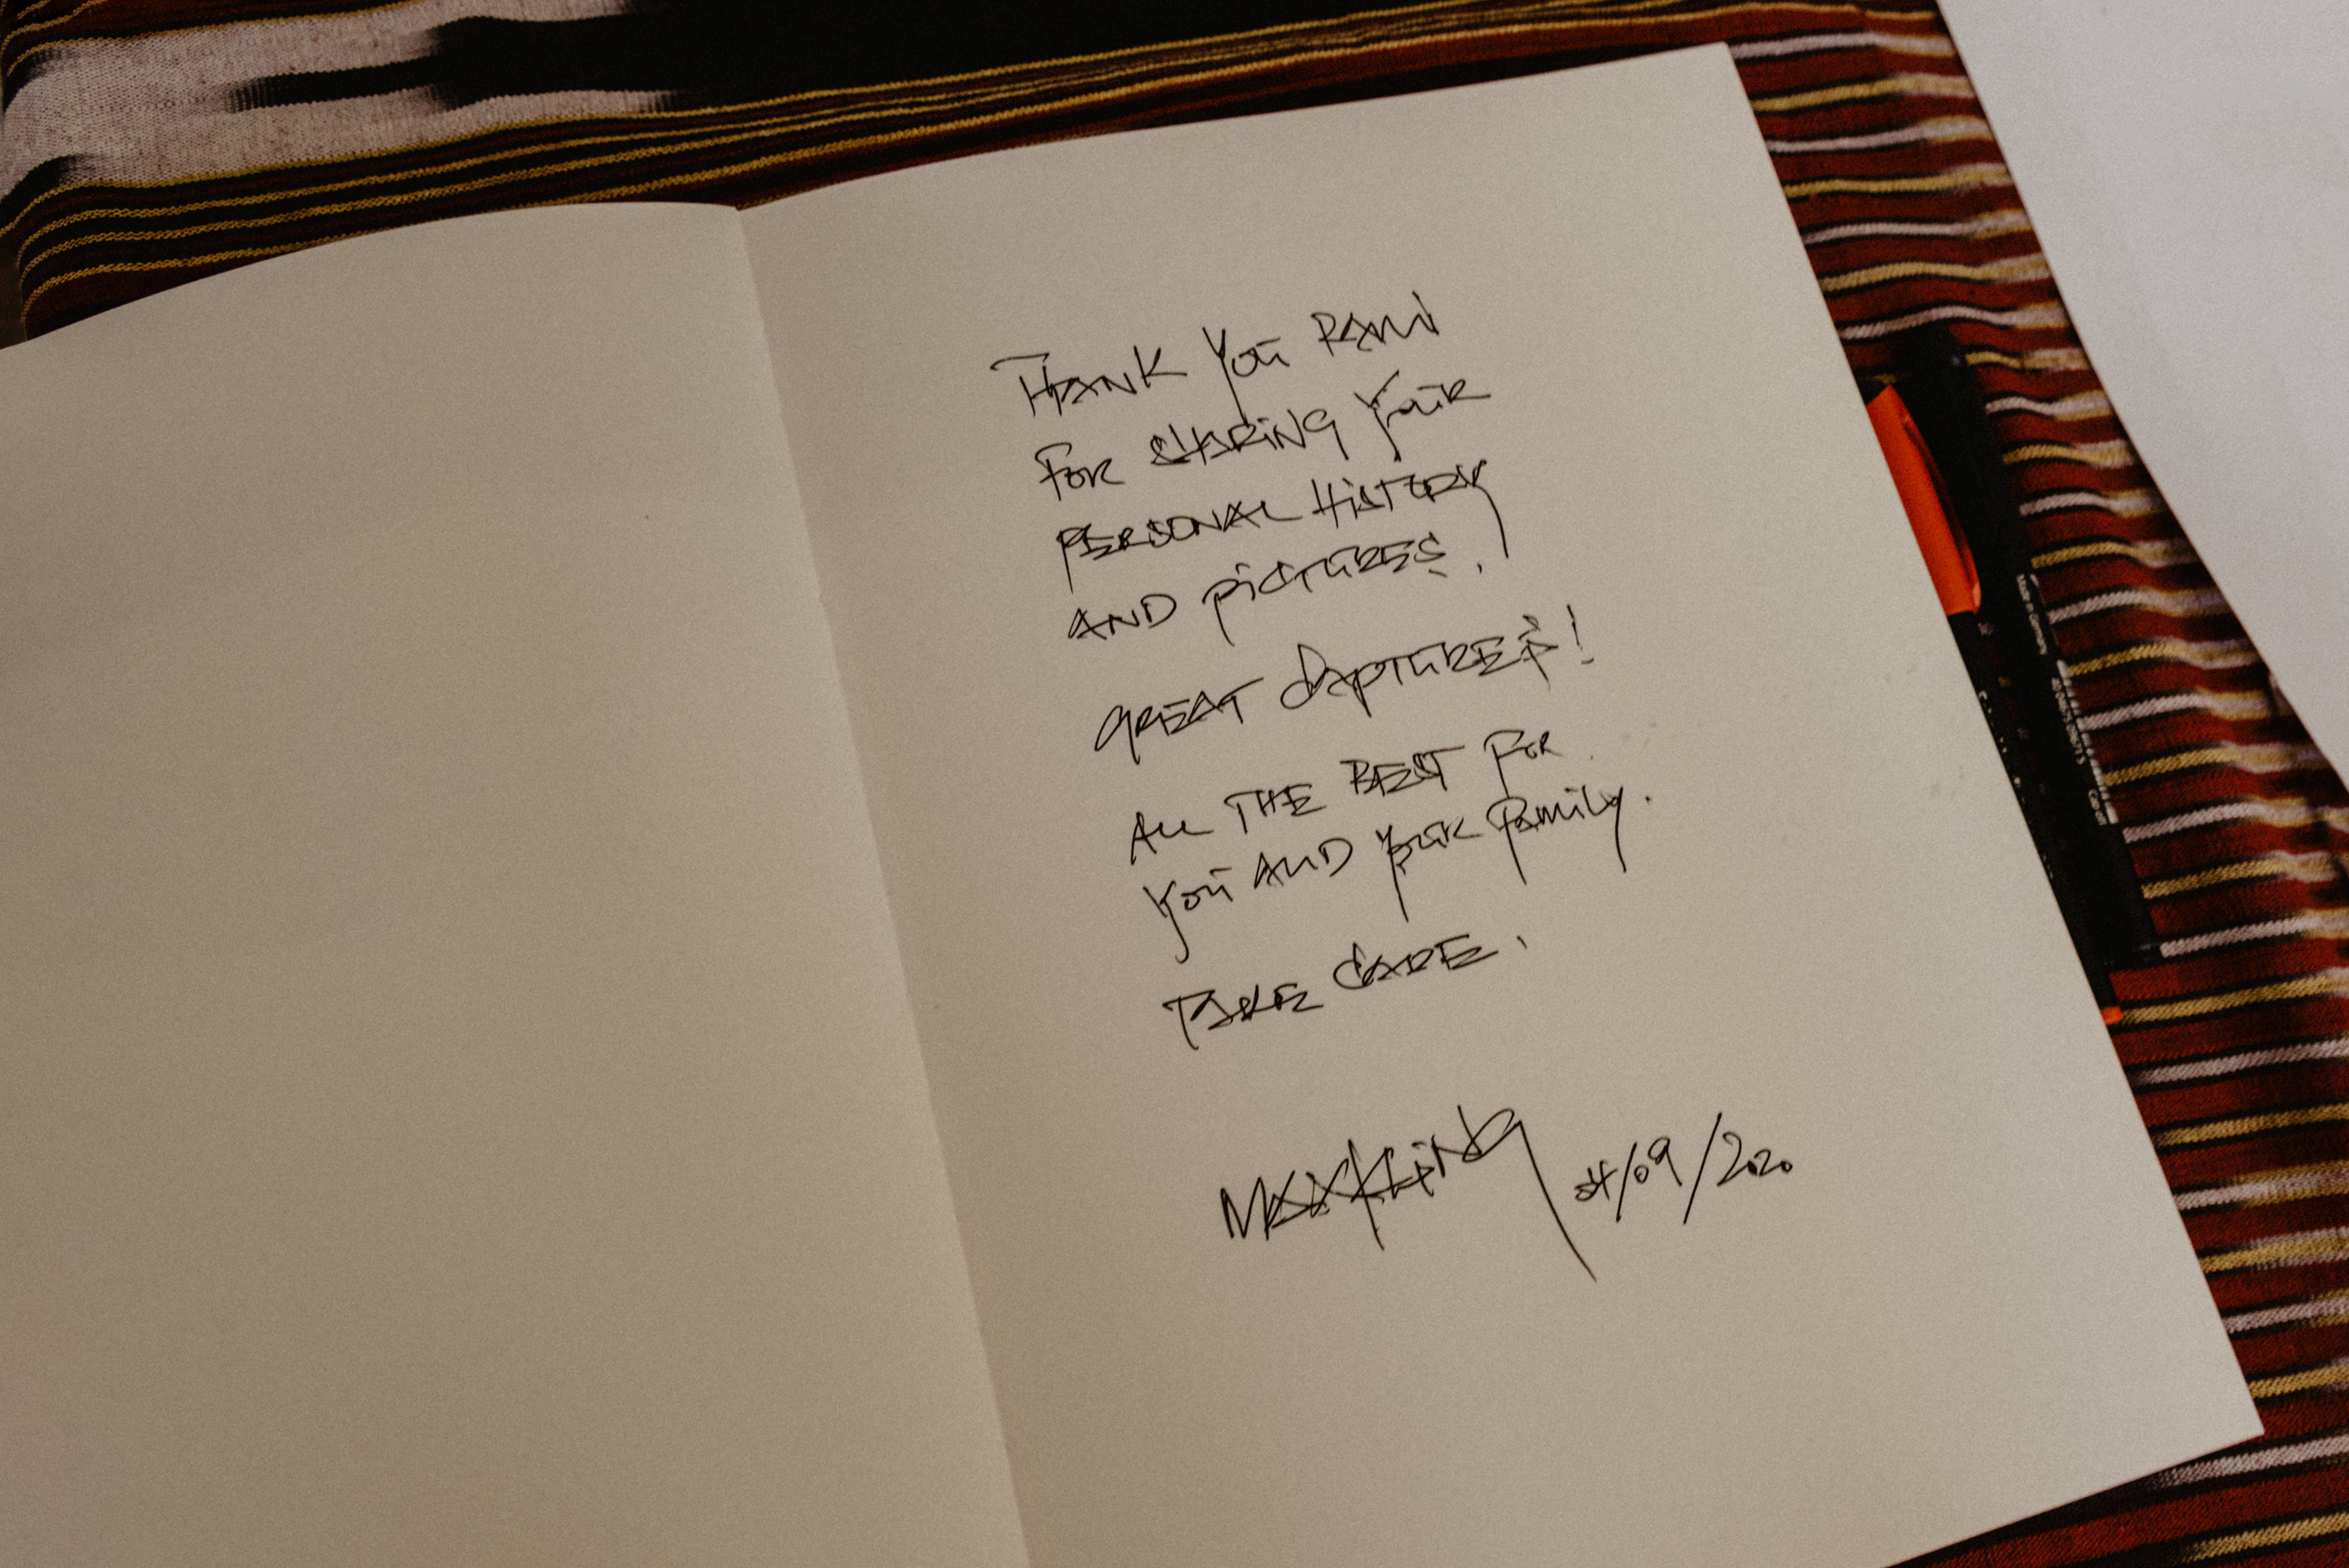 THANK YOU RAMI
FOR SHARING YOUR
PERSONAL HISTORY
AND PICTURES.
GREAT CAPTURES!
ALL THE BEST FOR
YOU AND YOUR FAMILY.
TAKE CARE.
04/09/2020
Made in Germany